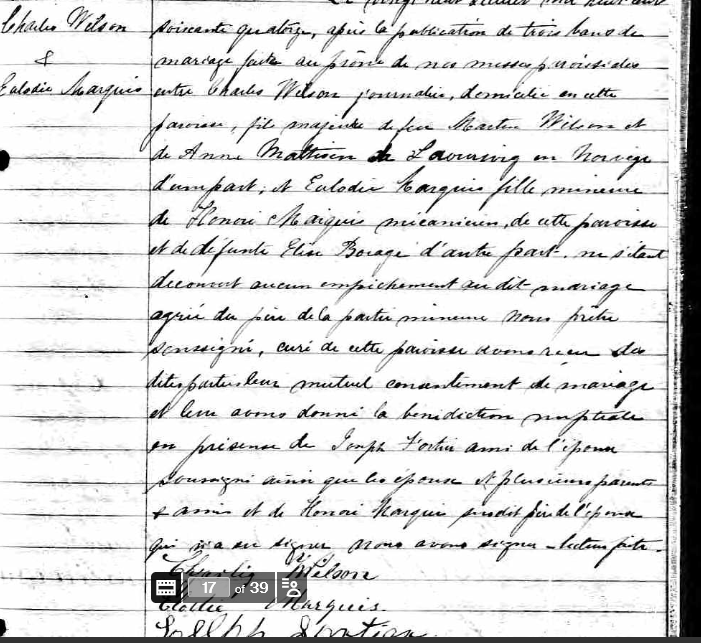 Le vingt neuf Juillet mil huit cent
Charles Wilson
&
Eulodie Marquis
soixante quatorze, après la publication de trois bans de
mariage faite au prône de nos messes paroissiales
entre Charles Wilson journalier, domicilié en cette
paroisse, fils majeur de feu Martin Wilson et
de Anne Mattison de en Norvège
d'une part; et Eulodie Marquis fille mineure
de Honoré Marquis mécanicien, de cette paroisse
et de défunte Elise Borage d'autre part. ne s'étant
découvert aucun empêchement au dit mariage
agrée du père de la partie mineure Nous prêtre
soussigné, curé de cette paroisse avons reçu des
dites parties leur mutuel consentement de mariage
et leur avons donné la bénédiction nuptiale
en présence de Joseph Fortin ami de l'époux
soussigné ainsi que les épouse et plusieurs parents
& amis et de Honoré Marquis susdit père de l'épouse
qui n'a su signer nous avons signer lecture faite.
Charlie Wilson
17 of 39
Marquis
Joseph